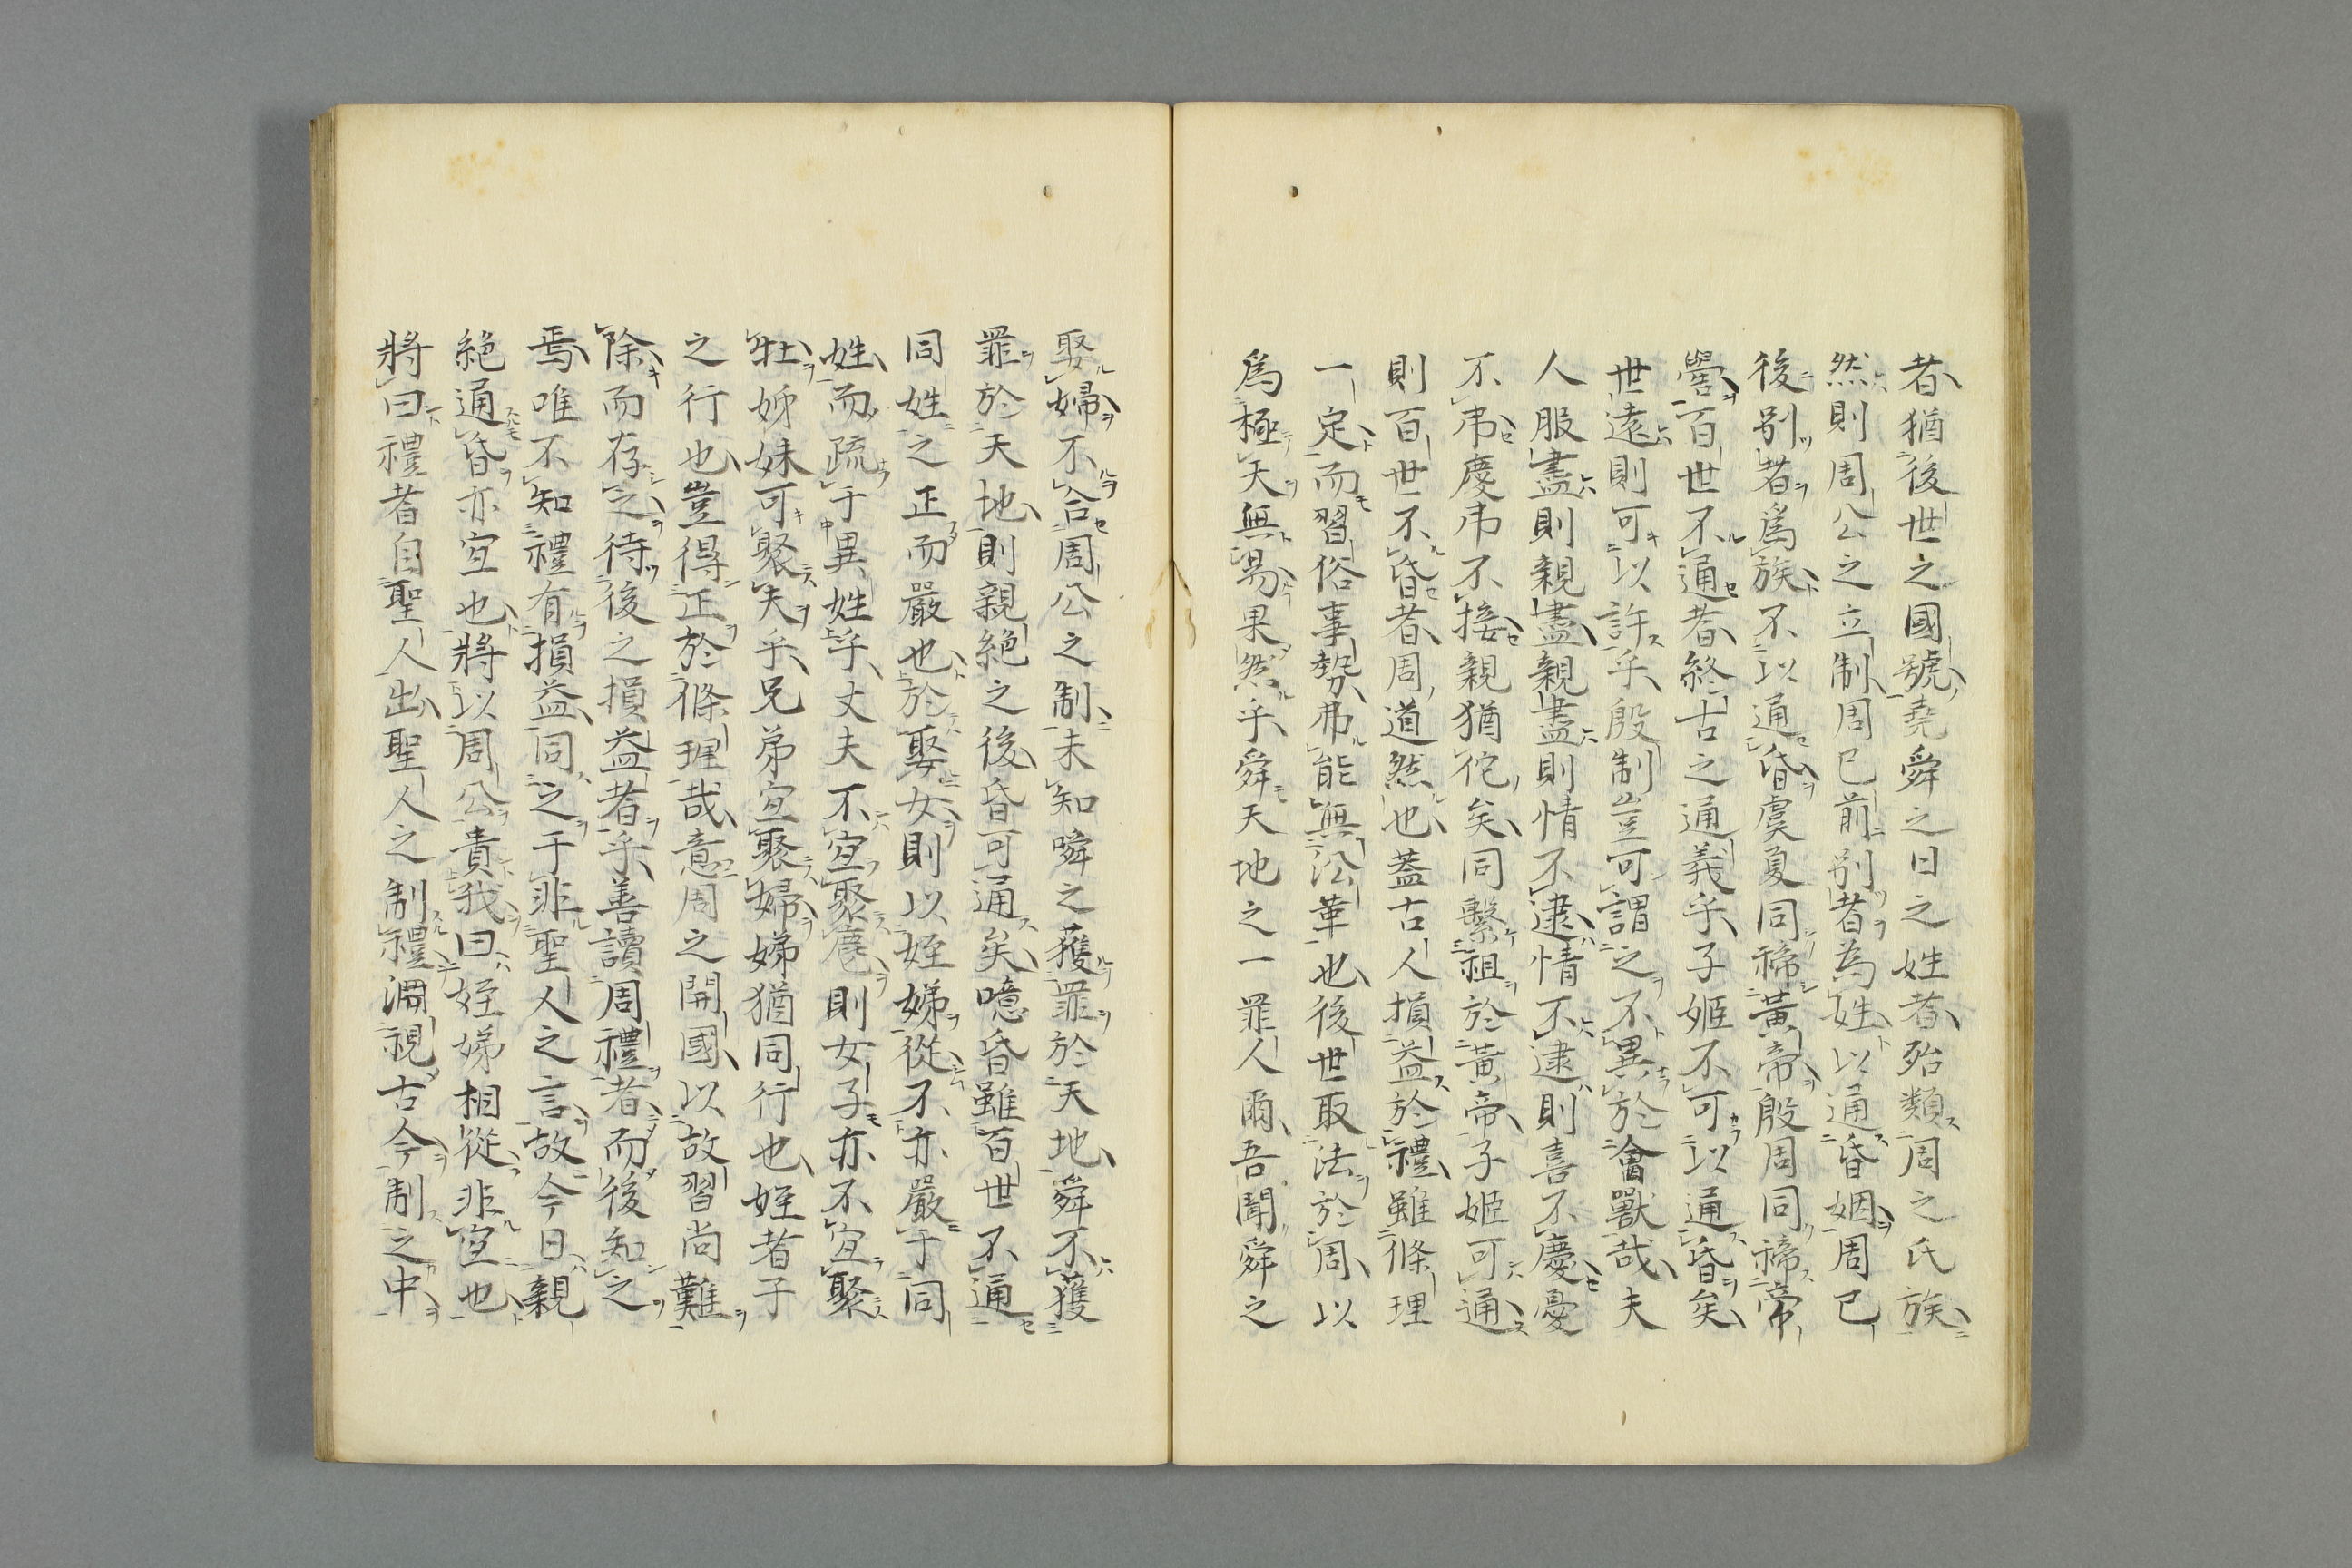 者猶後世之國號堯舜之日之姓者殆類周之氏族
然則周公之立制周已前別者為姓以通昏姻周已
後別者爲族不以通昏虞夏同禘黃帝殷周同禘帝
嚳百世不通者終古之通義乎子姬不可以通昏矣
世遠則可以許乎殷制豈可謂之不異於禽獸哉夫
人服盡則親盡親盡則情不逮情不逮則喜不慶憂
不弔慶弔不接親猶佗矣同繫祖於黃帝子姬可通
則百世不昏者周道然也蓋古人損益於禮雖條理
一定而習俗事勢弗能無沿革也後世取法於周以
爲極天無易果然乎舜天地之一罪人爾吾聞舜之
娶婦不合周公之制未知舜之獲罪於天地舜不獲
罪於天地則親絕之後昏可通矣噫昏雖百世不通
同姓之正而嚴也於娶女則以姪娣從不亦嚴于同
姓而疏于異姓乎丈夫不宜聚麀則女子亦不宜聚
牡姊妹可聚夫乎兄弟宜聚婦娣猶同行也姪者子
之行也豈得正於條理哉意周之開國以故習尚難
除而存之待後之損益者乎善讀周禮者而後知之
焉唯不知禮有損益同之于非聖人之言故今日親
絕通昏亦宜也將以周公責我曰姪娣相從非宜也
將曰禮者自聖人出聖人之制禮洞視古今制之中